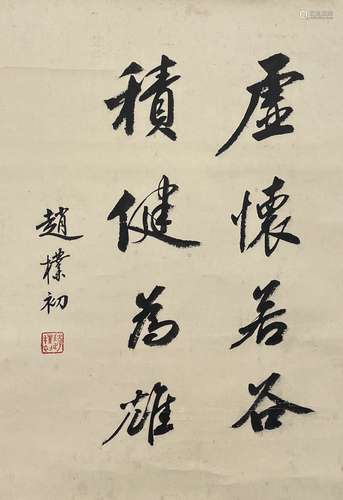 虛懷若谷
積健為雄
趙樸初